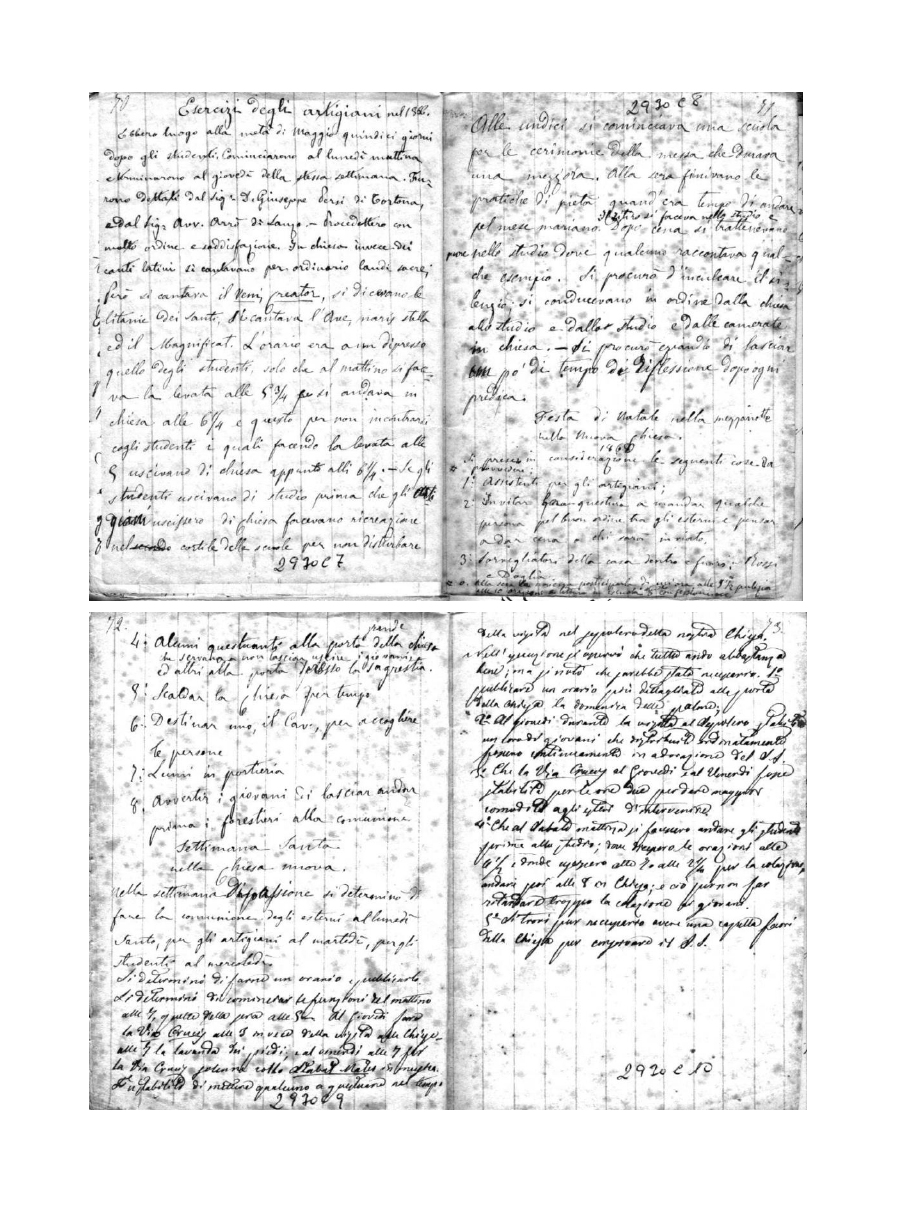 70
Esercizi degli artigiani nel 1868.
Ebbero luogo alla metà di Maggio quindici giorni
dopo gli studenti. Cominciarono al lunedì mattina
e terminarono al giovedì della stessa settimana. Fu-
rono dettati dal Sig. D. Giuseppe Persi di Tortona,
e dal Sig. Avv. Arrò di Lanzo. — Procedettero con
molto ordine e soddisfazione. In chiesa invece dei
canti latini si cantavano per ordinario laudi sacre;
Però si cantava il Veni, creator, si dicevano le
litanie dei Santi, si cantava l'Ave, maris stella
ed il Magnificat. L'orario era a un dipresso
quello degli studenti, solo che al mattino si fac-
va la levata alle 5 3/4 e si andava in
chiesa alle 6 1/4 e questo per non incontrarsi
cogli studenti i quali facendo la levata alle
5 uscivano di chiesa appunto alli 6 1/4. — Se gli
studenti uscivano di studio prima che gli arti
giani uscissero di chiesa facevano ricreazione
nel cortile delle scuole per non disturbare
2930 C 7
2930 C 8
71
Alle undici si cominciava una scuola
per le cerimonie della messa che durava
una mezzora. Alla sera finivano le
pratiche di pietà quand'era tempo di andare
pel mese mariano. Dopo cena si trattenevano
nello studio dove qualcuno raccontava qual-
che esempio. Si procurò d'inculcare il si-
lenzio, si conducevano in ordine dalla chiesa
allo studio e dallo studio e dalle camerate
in chiesa. — Si procurò eziandio di lasciar
un po' di tempo di riflessione dopo ogni
predica.
Festa di Natale nella mezzanotte
nella nuova chiesa.
1868
Si prese in considerazione le seguenti cose da
provvedersi:
1° Assistenti per gli artigiani;
2° Invitar questura a mandar qualche
persona pel buon ordine tra gli esterni e pensar
a dar cena a chi sarà inviato.
3° Sorvegliatori della casa dentro e fuori: Rossi
e Doglia
72.
4° Alcuni questuanti alla porta grande della chiesa
ed altri alla porta presso la sagrestia.
5° Scaldar la chiesa per tempo
6° Destinar uno, il Cav., per accogliere
le persone
7° Lumi in portieria
8° Avvertir i giovani di lasciar andar
prima i forestieri alla comunione
Settimana Santa
nella Chiesa nuova.
nella settimana di passione si determinò di
fare la comunione degli esterni al lunedì
Santo, per gli artigiani al martedì, per gli
studenti al mercoledì.
Si determinò di farne un orario e pubblicarlo.
Si determinò di cominciar le funzioni del mattino
alle 7, quelle della sera alle Al Giovedì farà
la Via Crucis alle della visita alle Chiese
alle 7 la lavanda dei piedi; e al venerdì alle 7
la Via Crucis solenne collo Stabat Mater in musica.
Fu stabilito di mettere qualcuno a questuare nel tempo
2930 C 9
73.
della visita nel sepolcro della nostra Chiesa.
Nell'esecuzione si osservò che tutto andò abbastanza
bene; ma si notò che sarebbe stato necessario. 1°
pubblicare un orario più dettagliato alla porta
della chiesa la domenica delle palme;
2° Al giovedì durante la visita al Sepolcro stabilire
un coro di giovani che ordinatamente
fossero continuamente in adorazione del S.S.
3° Che la Via Crucis al Giovedì e al Venerdì fosse
stabilita per le ore due per dare maggior
comodità agli esterni d'intervenire
4° Che al Sabato mattina si facessero andare gli studenti
prima allo studio; dove dicessero le orazioni alle
6 1/2 e donde uscissero alle per la colazione,
andare poi alle 8 in Chiesa; e ciò per non far
ritardare troppo la colazione ai giovani.
5° Si trovò pur necessario avere una cappella fuori
della Chiesa per conservare il S.S.
2930 C 10